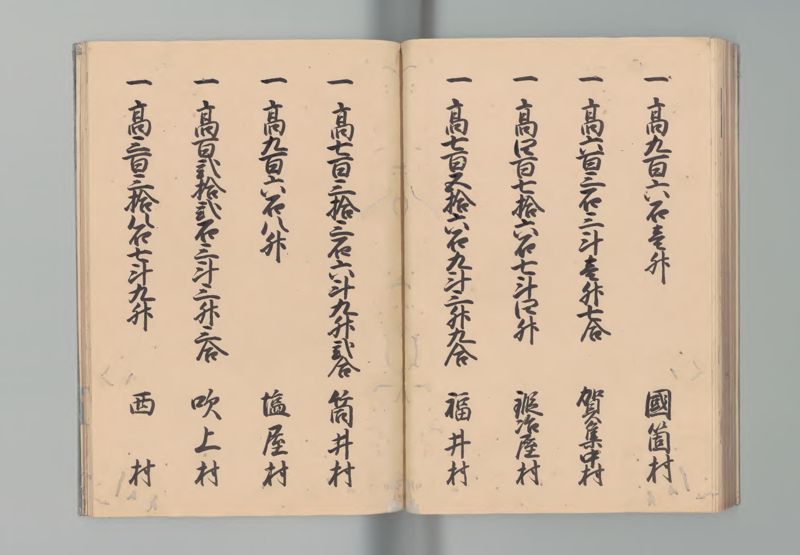 一 高九百六石壱升 國箇村
一 高六百三石三斗壱升七合 賀集中村
一 高四百七拾六石七斗四升 鍜冶屋村
一 高七百五拾六石九斗三升九合 福井村
一 高七百三拾三石六斗九升弐合 筒井村
一 高九百六石八升 塩屋村
一 高百弐拾弐石三斗三升三合 吹上村
一 高三百三拾八石七斗九升 西村